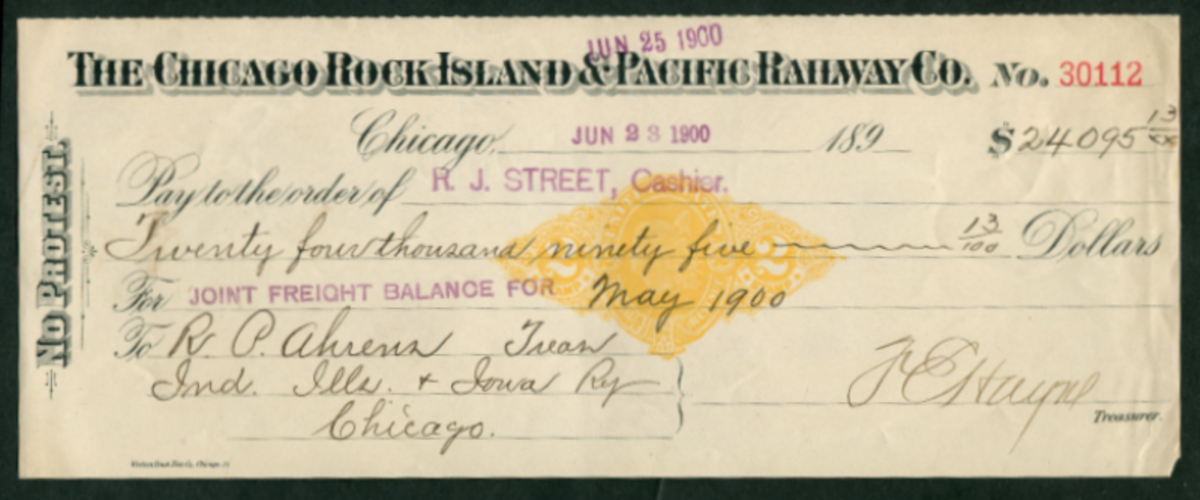 JUN 25 1900
THE CHICAGO ROCK ISLAND & PACIFIC RAILWAY CO. No. 30112
Chicago, JUN 23 1900 189 $24095 13/100
Pay to the order of R. J. STREET, Cashier.
Twenty four thousand ninety five 13/100 Dollars
For JOINT FREIGHT BALANCE FOR May 1900
To R. P. Ahrens Treas
Ind. Ills. & Iowa Ry
Chicago.
F E Hayne
Treasurer.
NO PROTEST.
2 2